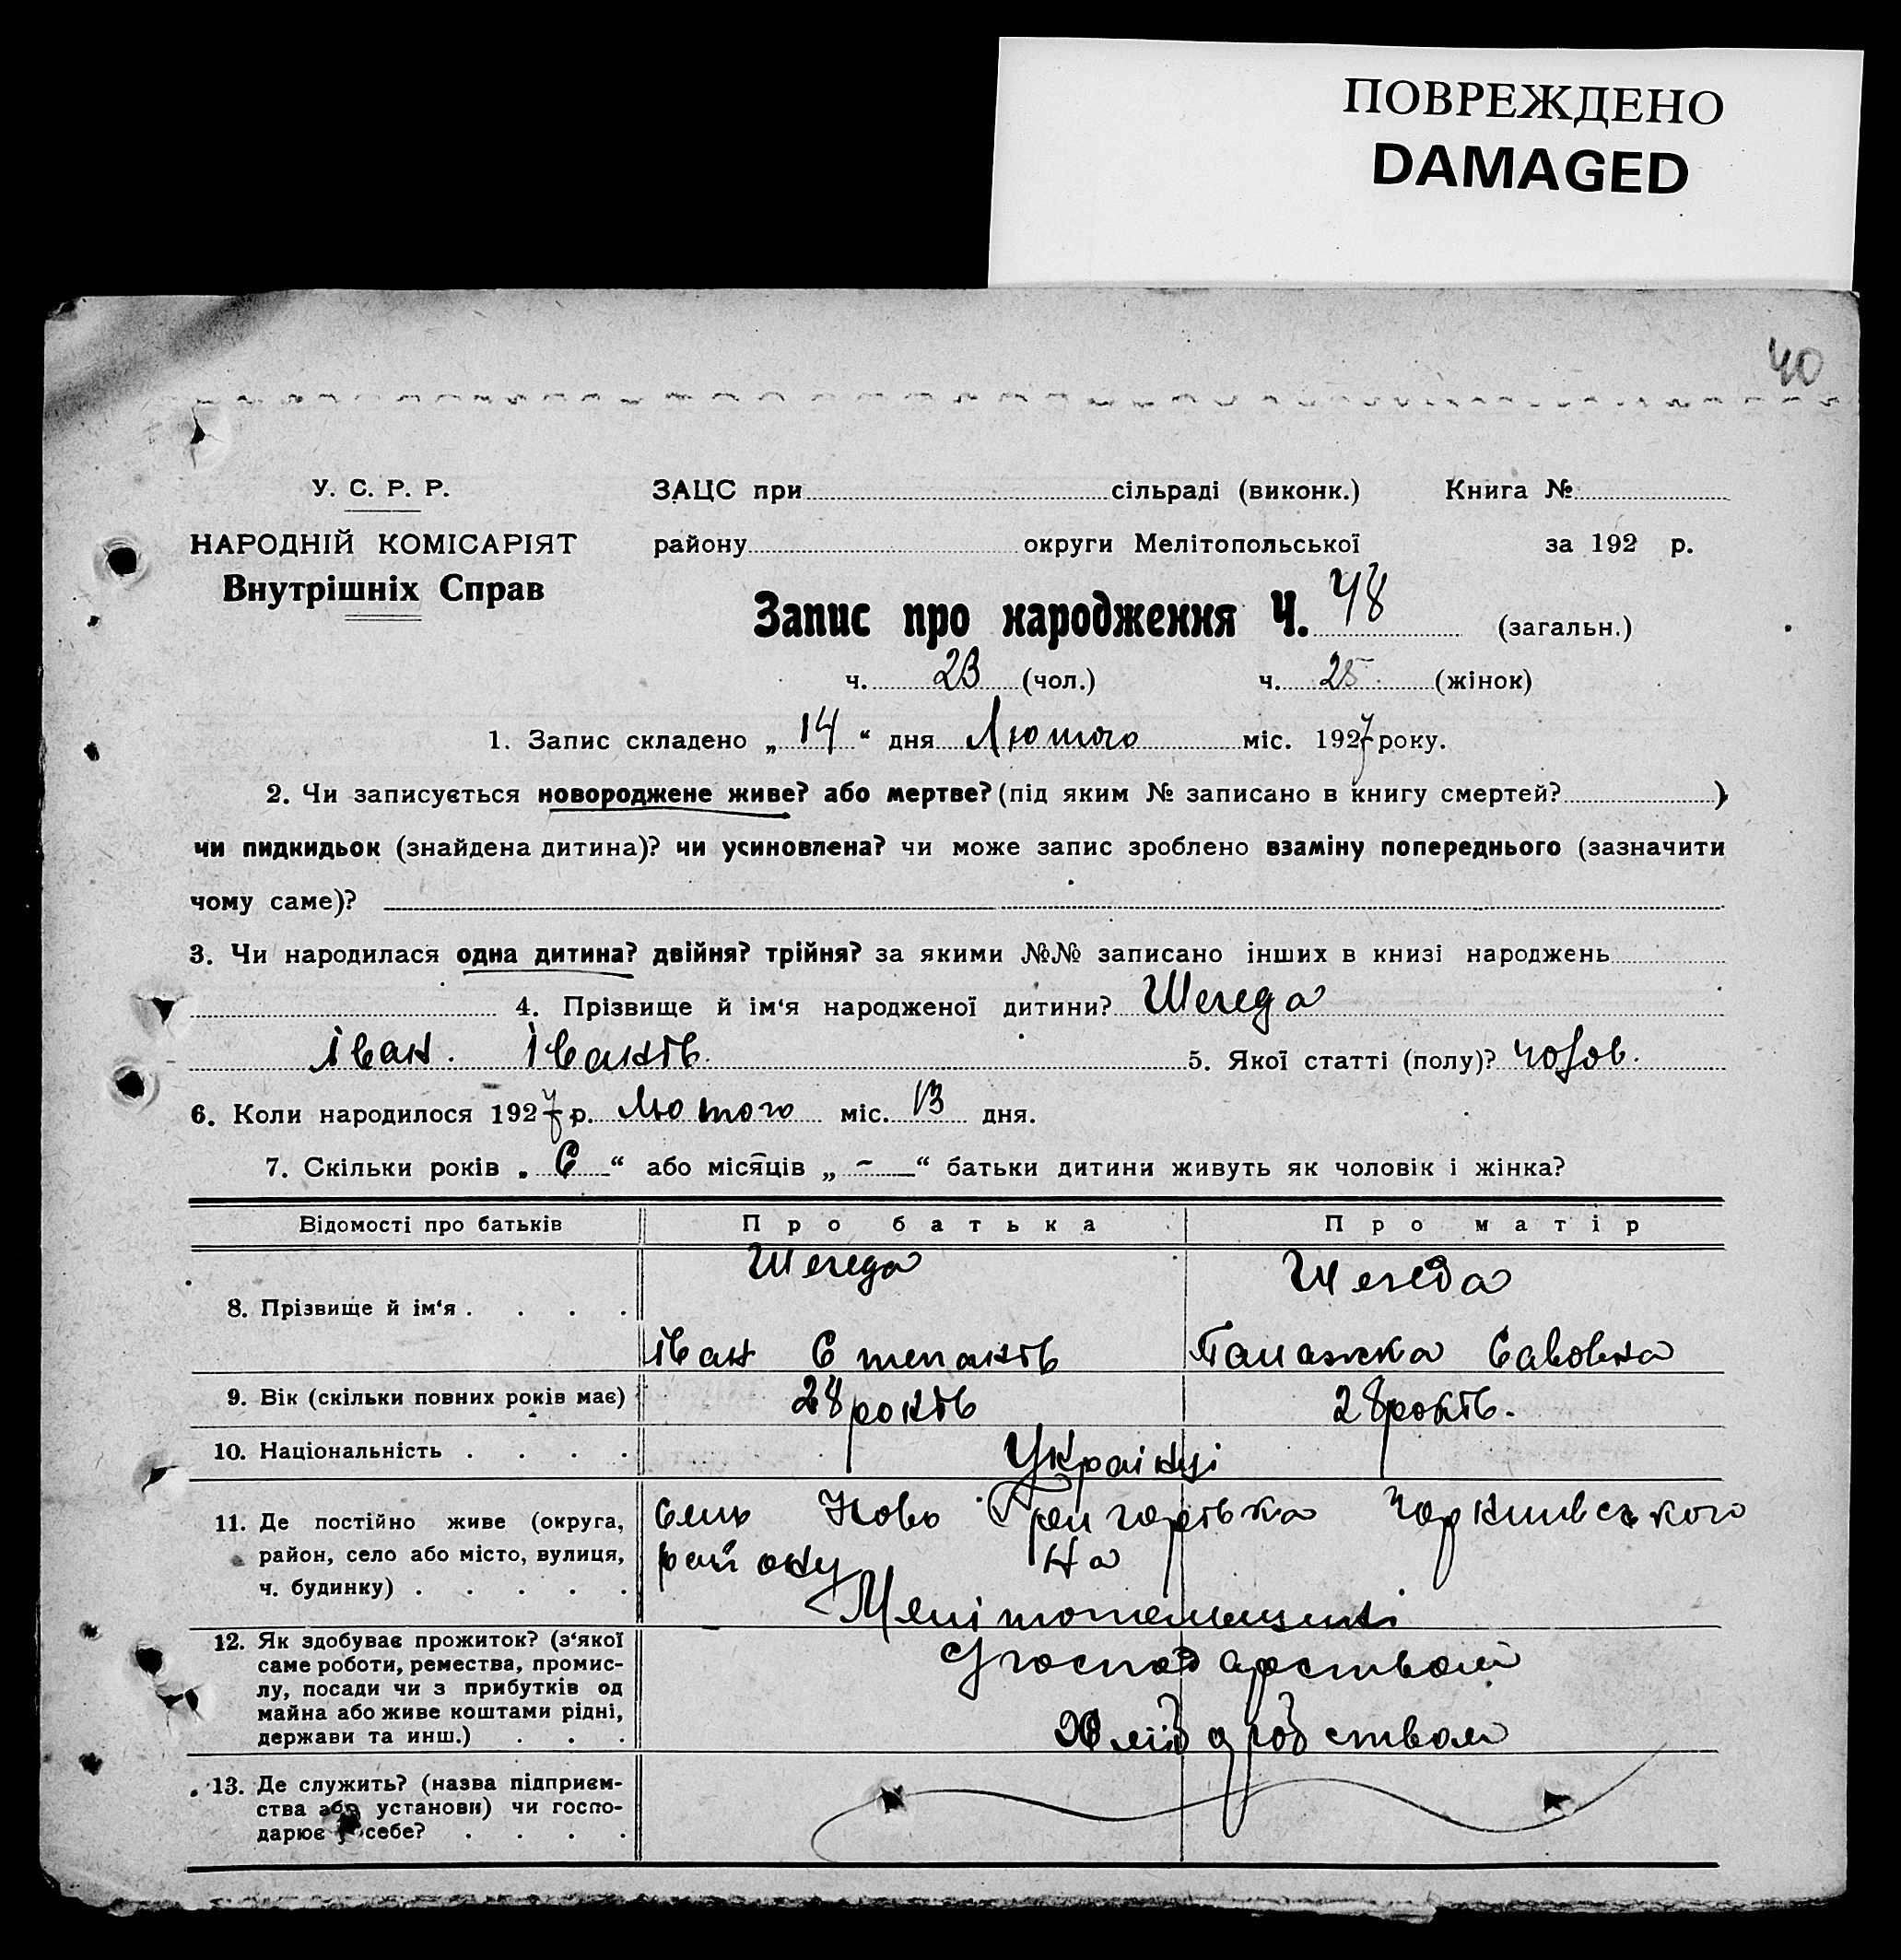 ПОВРЕЖДЕНО
DAMAGED
40
У. С. Р. Р.
НАРОДНІЙ КОМІСАРІЯТ
Внутрішніх Справ
ЗАЦС при сільраді (виконк.) Книга №
району округи Мелітопольської за 192 р.
Запис про народження Ч. 48 (загальн.)
ч. 23 (чол.) ч. 25 (жінок)
1. Запис складено „ 14 “ дня Лютого міс. 1927 року.
2. Чи записується новороджене живе? або мертве? (під яким № записано в книгу смертей? )
чи пидкидьок (знайдена дитина)? чи усиновлена? чи може запис зроблено взаміну попереднього (зазначити
чому саме)?
3. Чи народилася одна дитина? двійня? трійня? за якими №№ записано інших в книзі народжень
4. Прізвище й ім‘я народженої дитини? Шегеда
Іван. Іванів. 5. Якої статті (полу)? чолов.
6. Коли народилося 1927 р. Лютого міс. 13 дня.
7. Скільки років „ 6 “ або місяців „ - “ батьки дитини живуть як чоловік і жінка?
Відомості про батьків Про батька Про матір
8. Прізвище й ім‘я . . . .
Шегеда
Іван Степанів
Шегеда
Палажка Савовна
9. Вік (скільки повних років має) 28 років 28 років.
10. Національність . . . . Українці
11. Де постійно живе (округа,
район, село або місто, вулиця,
ч. будинку) . . . . .
село Ново Григорівка
району на
Мелітопольщині
12. Як здобуває прожиток? (з‘якої
саме роботи, ремества, промис-
лу, посади чи з прибутків од
майна або живе коштами рідні,
держави та инш.) . . .
господарством
Хлібородством
13. Де служить? (назва підприєм-
ства або установи) чи госпо-
дарює у себе? . . . .